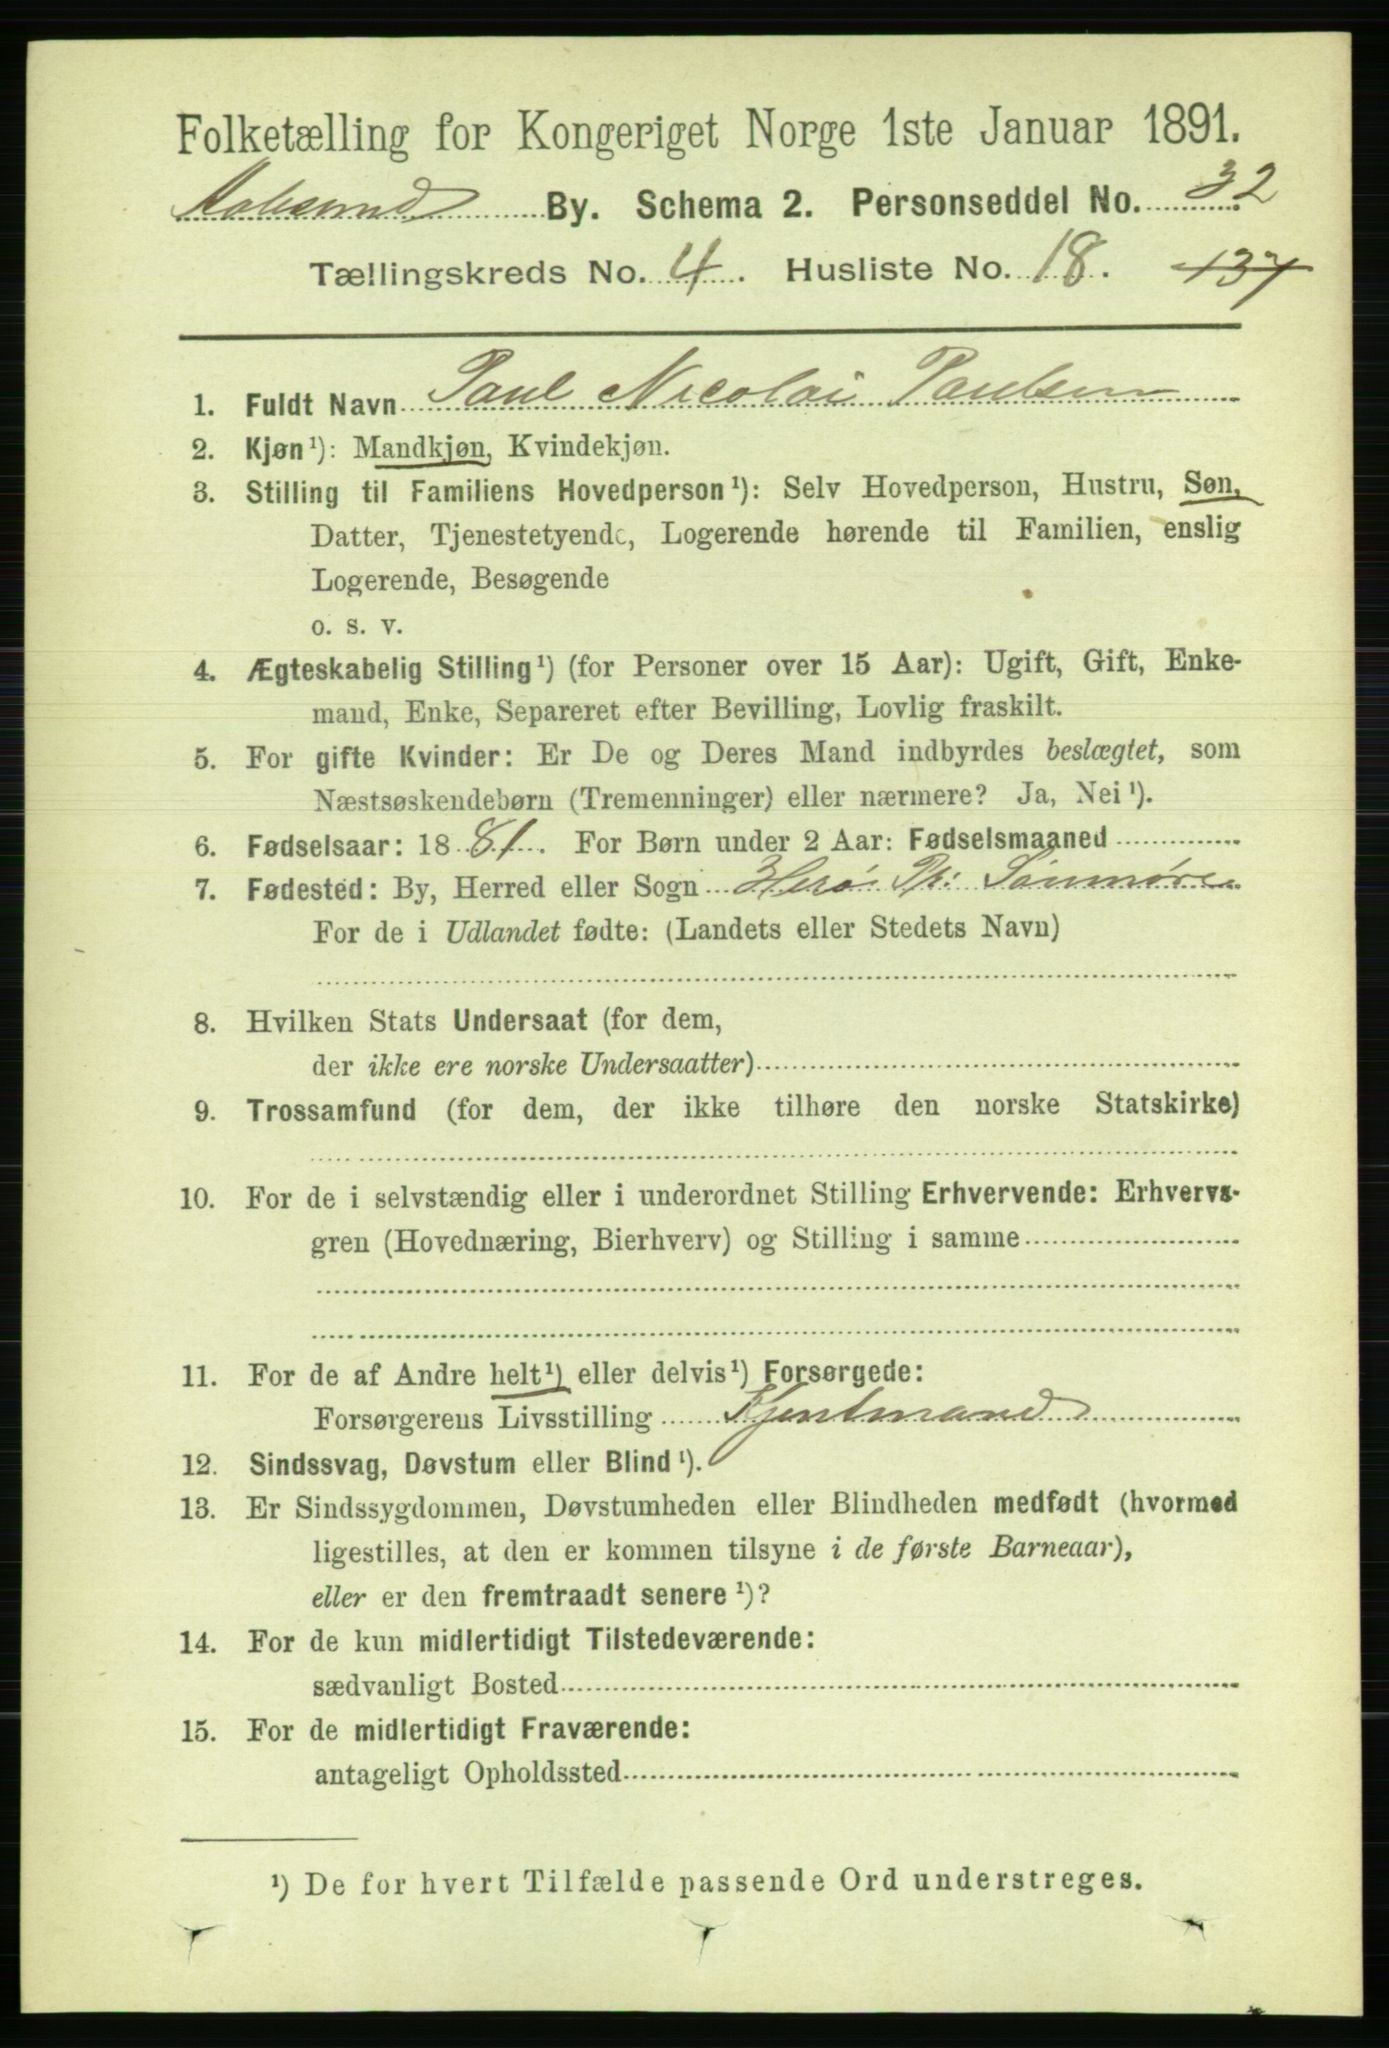 Folketælling for Kongeriget Norge 1ste Januar 1891.
Aalesund By. Schema 2. Personseddel No. 32
Tællingskreds No. 4. Husliste No. 18. 137
1. Fuldt Navn Paul Nicolai Paulsen
2. Kjøn¹): Mandkjøn, Kvindekjøn.
3. Stilling til Familiens Hovedperson¹): Selv Hovedperson, Hustru, Søn,
Datter, Tjenestetyende, Logerende hørende til Familien, enslig
Logerende, Besøgende
o. s. v.
4. Ægteskabelig Stilling¹) (for Personer over 15 Aar): Ugift, Gift, Enke-
mand, Enke, Separeret efter Bevilling, Lovlig fraskilt.
5. For gifte Kvinder: Er De og Deres Mand indbyrdes beslægtet, som
Næstsøskendebørn (Tremenninger) eller nærmere? Ja, Nei¹).
6. Fødselsaar: 1881. For Børn under 2 Aar: Fødselsmaaned
7. Fødested: By, Herred eller Sogn Herö Pr: Sönmöre
For de i Udlandet fødte: (Landets eller Stedets Navn)
8. Hvilken Stats Undersaat (for dem,
der ikke ere norske Undersaatter)
9. Trossamfund (for dem, der ikke tilhøre den norske Statskirke)
10. For de i selvstændig eller i underordnet Stilling Erhvervende: Erhvervs-
gren (Hovednæring, Bierhverv) og Stilling i samme
11. For de af Andre helt¹) eller delvis¹) Forsørgede:
Forsørgerens Livsstilling Kjentmand
12. Sindssvag, Døvstum eller Blind¹).
13. Er Sindssygdommen, Døvstumheden eller Blindheden medfødt (hvormed
ligestilles, at den er kommen tilsyne i de første Barneaar),
eller er den fremtraadt senere¹)?
14. For de kun midlertidigt Tilstedeværende:
sædvanligt Bosted
15. For de midlertidigt Fraværende:
antageligt Opholdssted
¹) De for hvert Tilfælde passende Ord understreges.